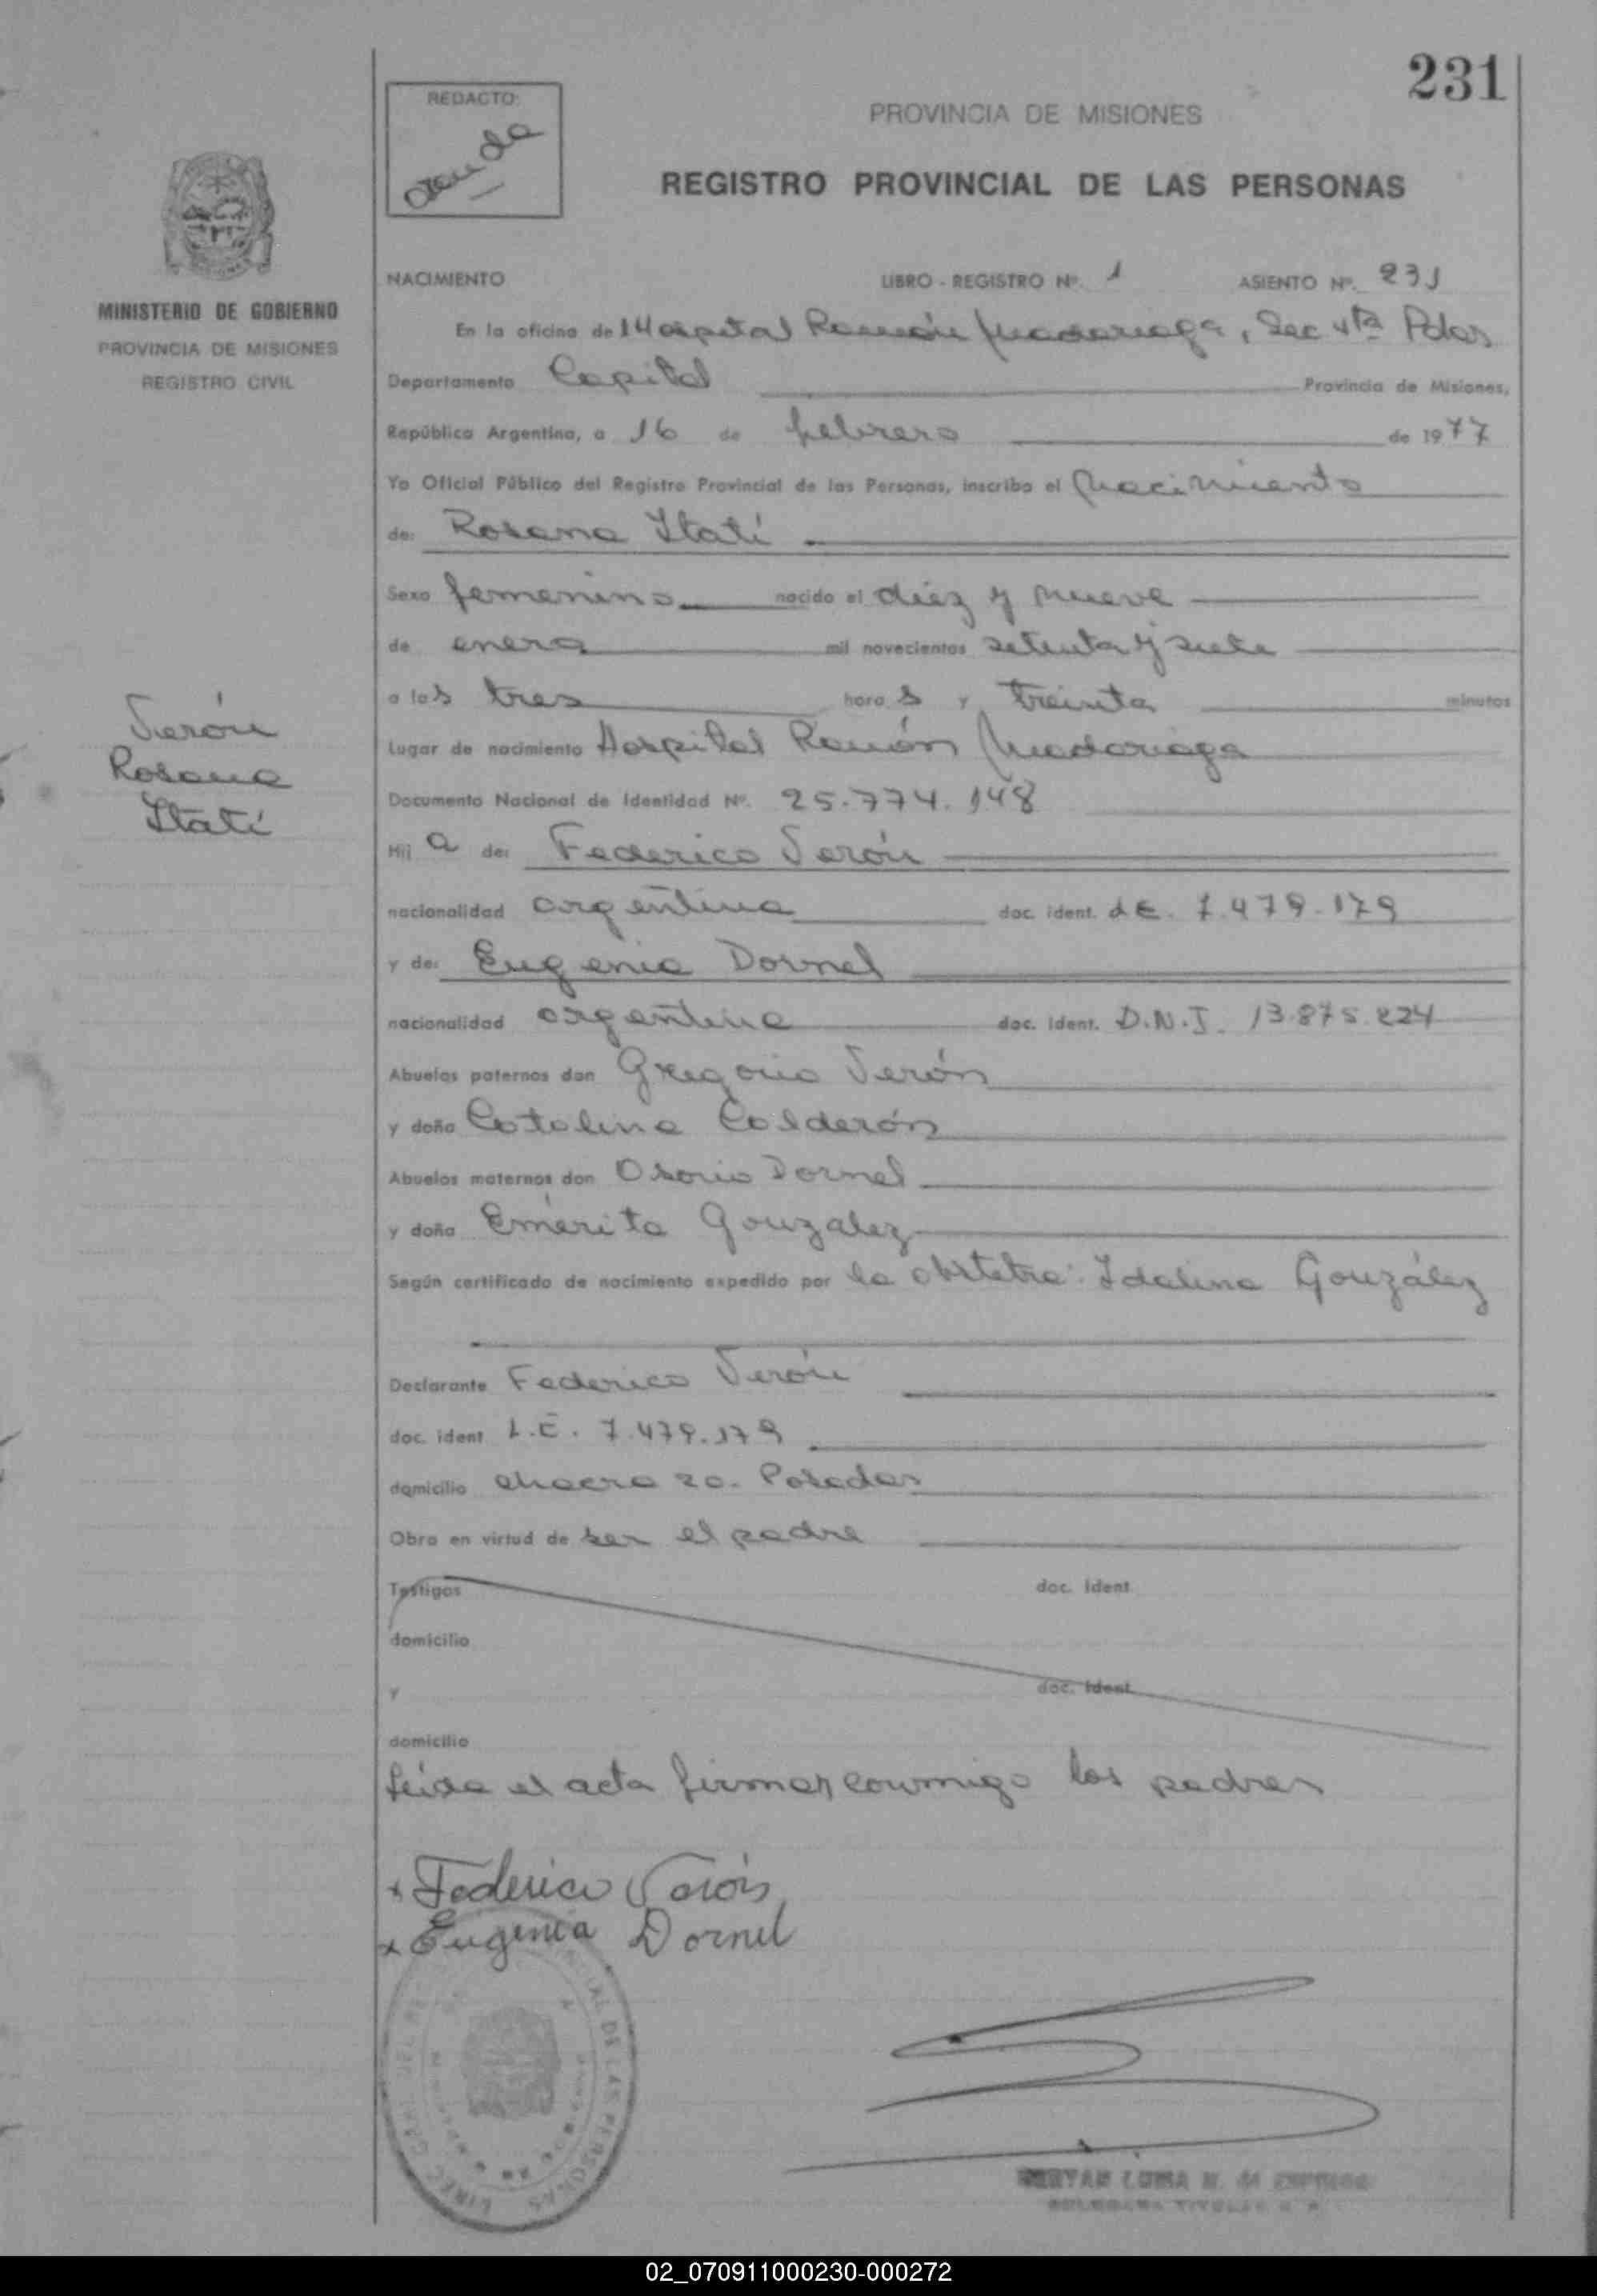 231
REDACTO:
PROVINCIA DE MISIONES
REGISTRO PROVINCIAL DE LAS PERSONAS
MINISTERIO DE GOBIERNO
PROVINCIA DE MISIONES
REGISTRO CIVIL
NACIMIENTO LIBRO - REGISTRO Nº. 1 ASIENTO Nº. 231
En la oficina de 1 Hospital Ramón Madariaga, Sec 4ta Pdas
Departamento Capital Provincia de Misiones,
República Argentina, a 16 de febrero de 1977
Yo Oficial Público del Registro Provincial de las Personas, inscribo el Nacimiento
de: Rosana Itatí
Sexo femenino nacido el diez y nueve
de enero mil novecientos setenta y siete
a las tres horas y treinta minutos
Verón
Rosana
Itatí
Lugar de nacimiento Hospital Ramón Madariaga
Documento Nacional de Identidad Nº. 25.774.148
Hija de: Federico Verón
nacionalidad argentina doc. ident. L.E. 7.479.179
y de: Eugenia Dornel
nacionalidad argentina doc. ident. D.N.I. 13.875.224
Abuelos paternos don Gregorio Verón
y doña Catalina Calderón
Abuelos maternos don Osorio Dornel
y doña Emérita Gonzalez
Según certificado de nacimiento expedido por la obstetra: Idalina González
Declarante Federico Verón
doc. ident L.E. 7.479.179
domicilio chacra 20. Posadas
Obra en virtud de ser el padre
Testigos doc. ident.
domicilio
y doc. ident.
domicilio
Leída el acta firman conmigo los padres
x Federico Verón
x Eugenia Dornel
02_070911000230-000272